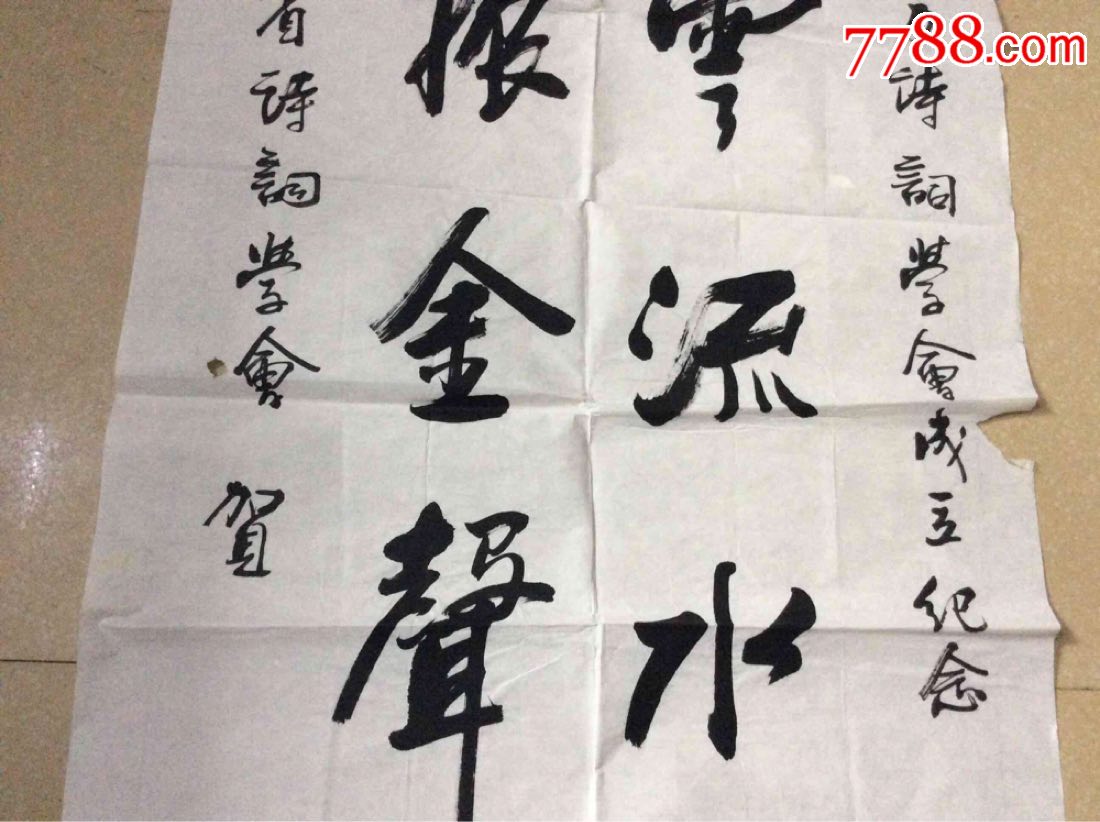 诗詞學會成立纪念
雲流水
振金聲
省诗詞學會 賀
7788.com